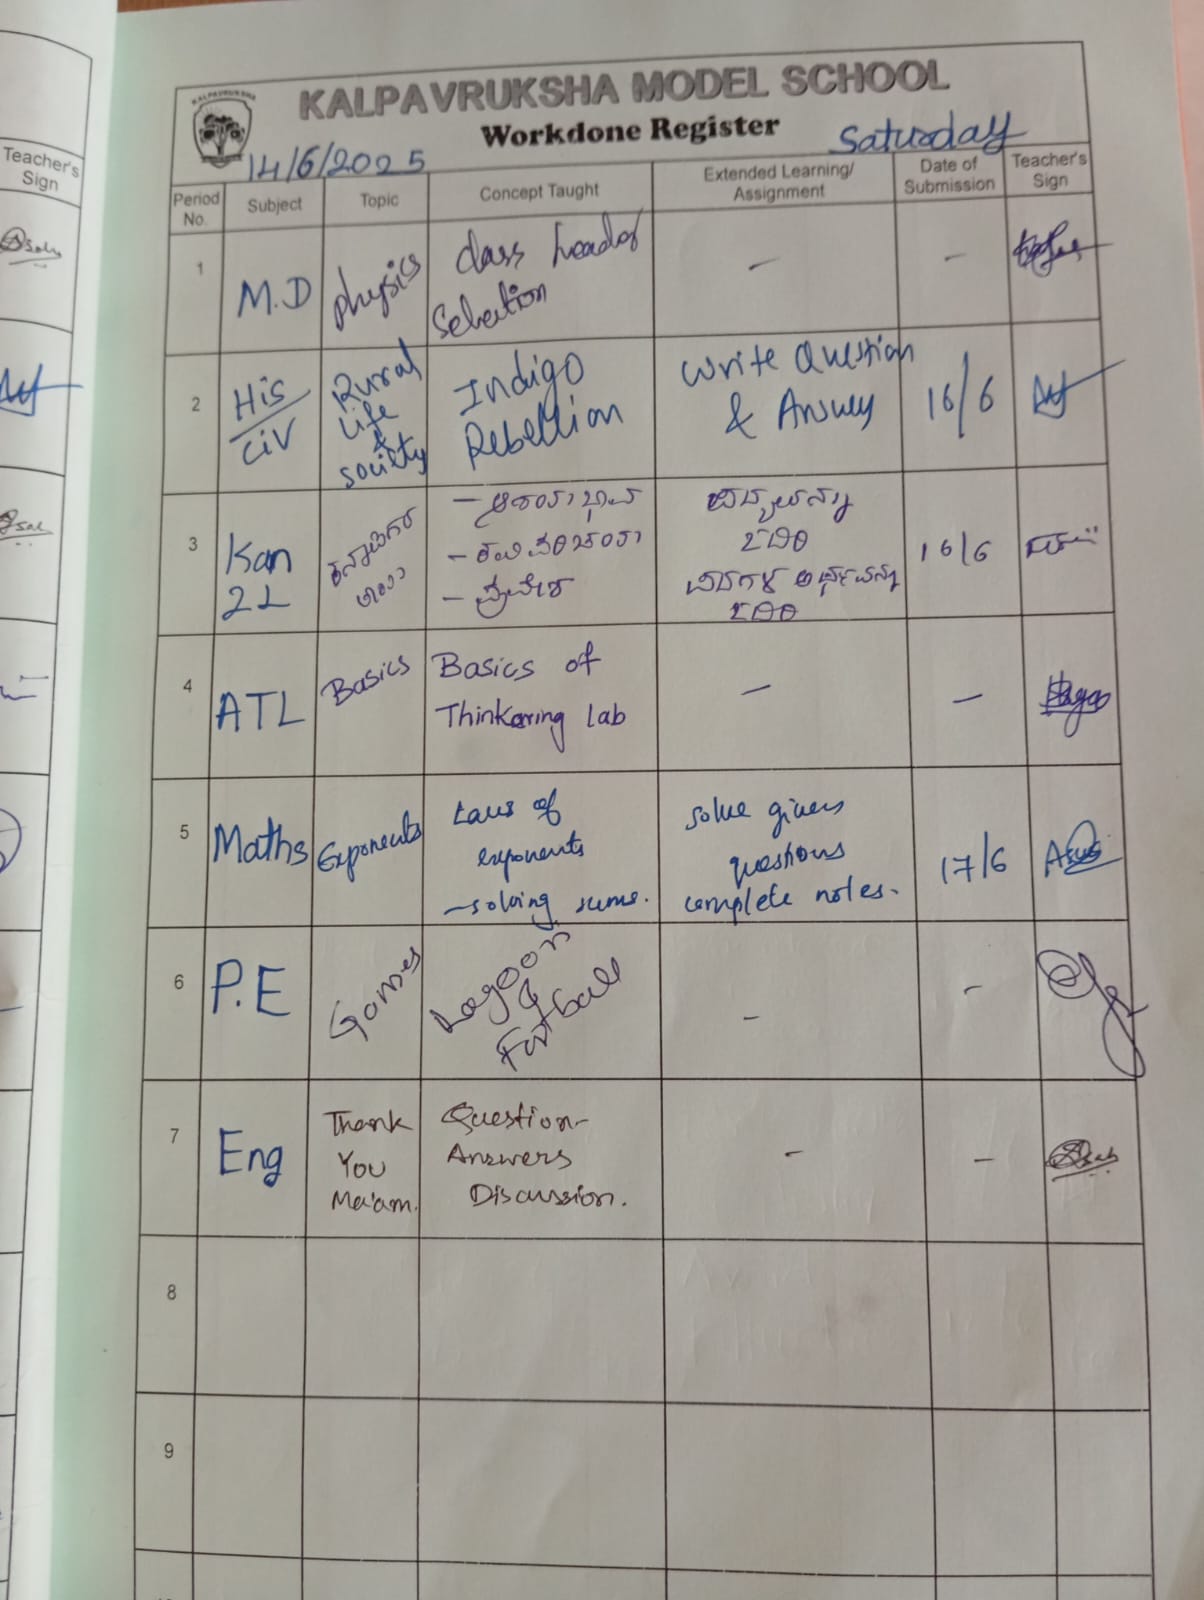 KALPAVRUKSHA MODEL SCHOOL
Workdone Register
14/6/2025 Saturday
Teacher's Sign
Period No. Subject Topic Concept Taught Extended Learning/ Assignment Date of Submission Teacher's Sign
1 M.D physics class leader Selection - -
2 His/Civ Rural life & society Indigo Rebellion Write Question & Answer 16/6
3 Kan 2L 16/6
4 ATL Basics Basics of Thinkering lab - -
5 Maths Exponents Laws of exponents - solving sums. solve given questions complete notes. 17/6
6 P.E Games Lagoon & Football - -
7 Eng Thank You Ma'am. Question- Answers Discussion. - -
8
9